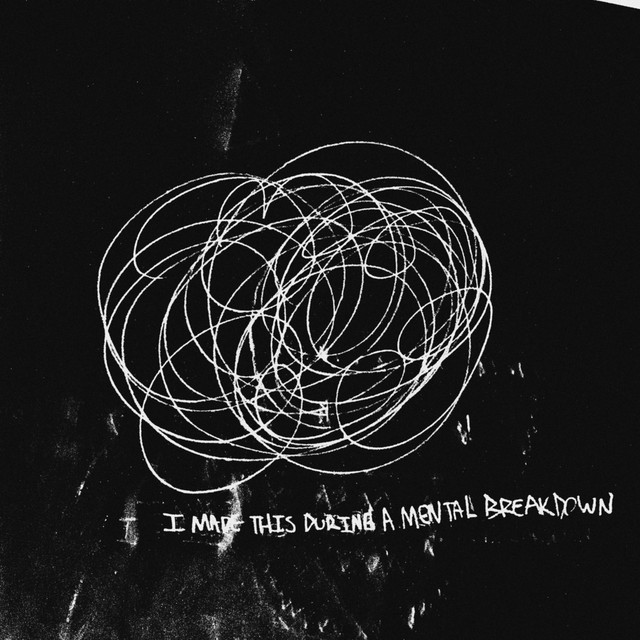 I MADE THIS DURING A MENTAL BREAKDOWN